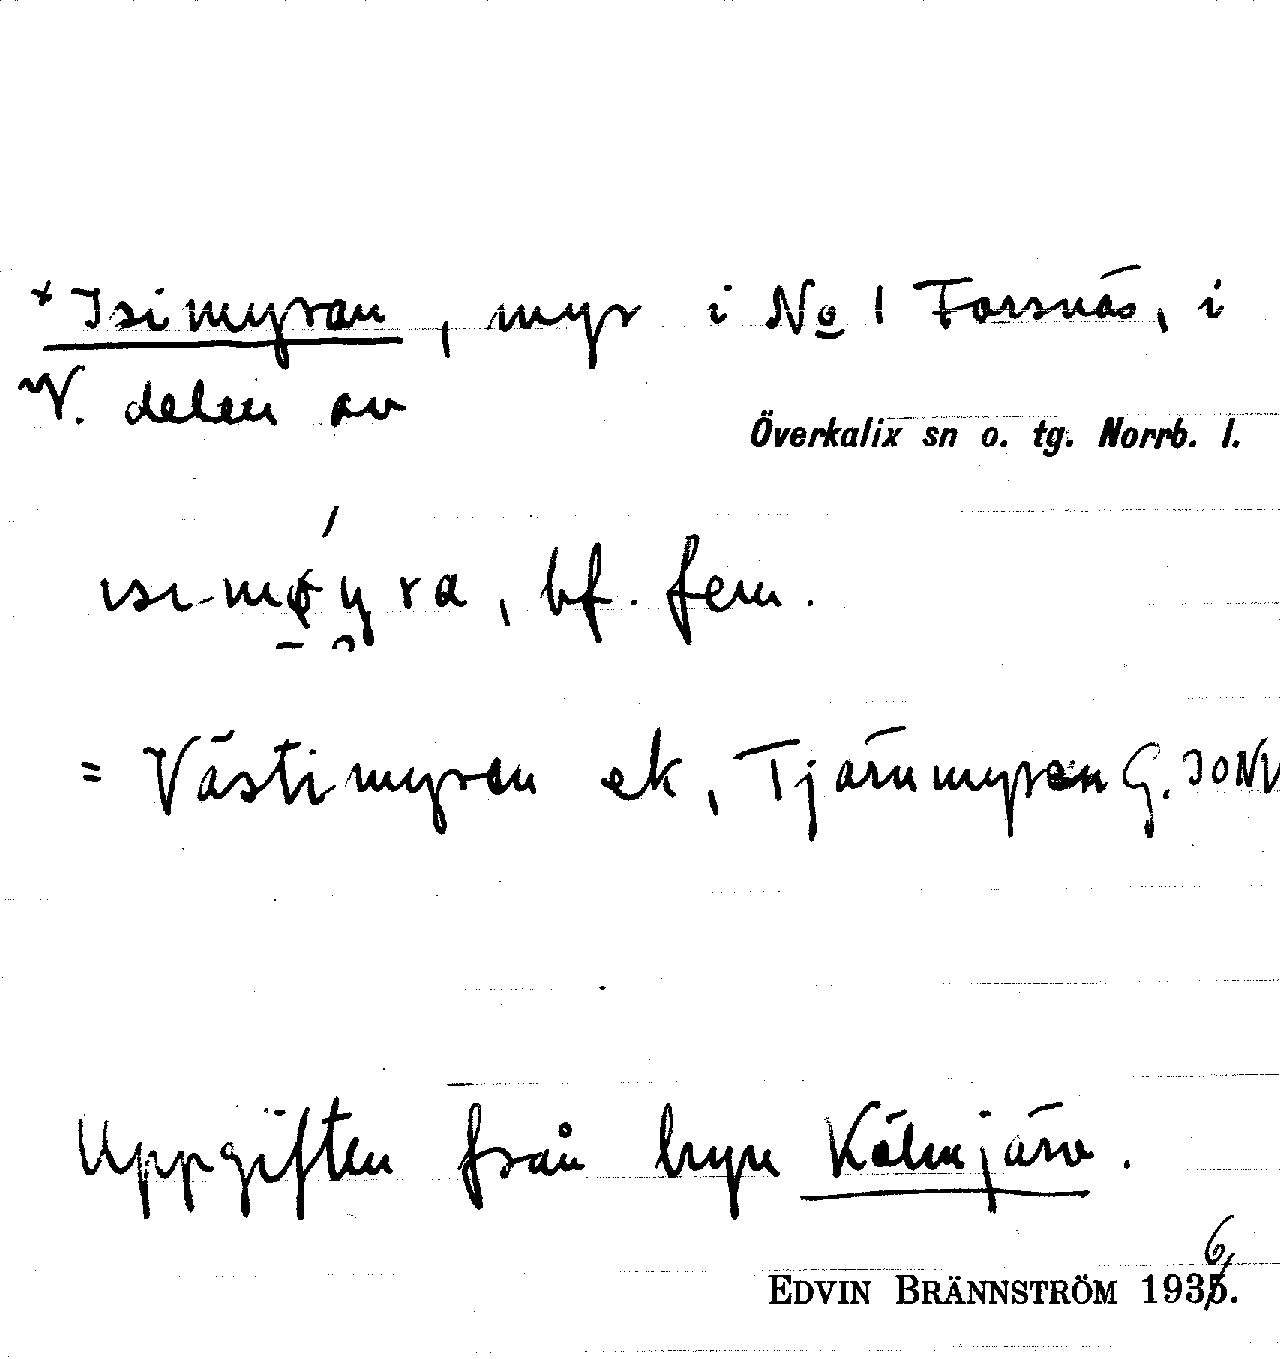 + Isimyran, myr i No 1 Forsnäs, i
V. delen av
Överkalix sn o. tg. Norrb. l.
bf. fem.
= Västimyren ek, Tjärnmyren G.
Uppgiften från byn Kölmjärv.
EDVIN BRÄNNSTRÖM 1936.